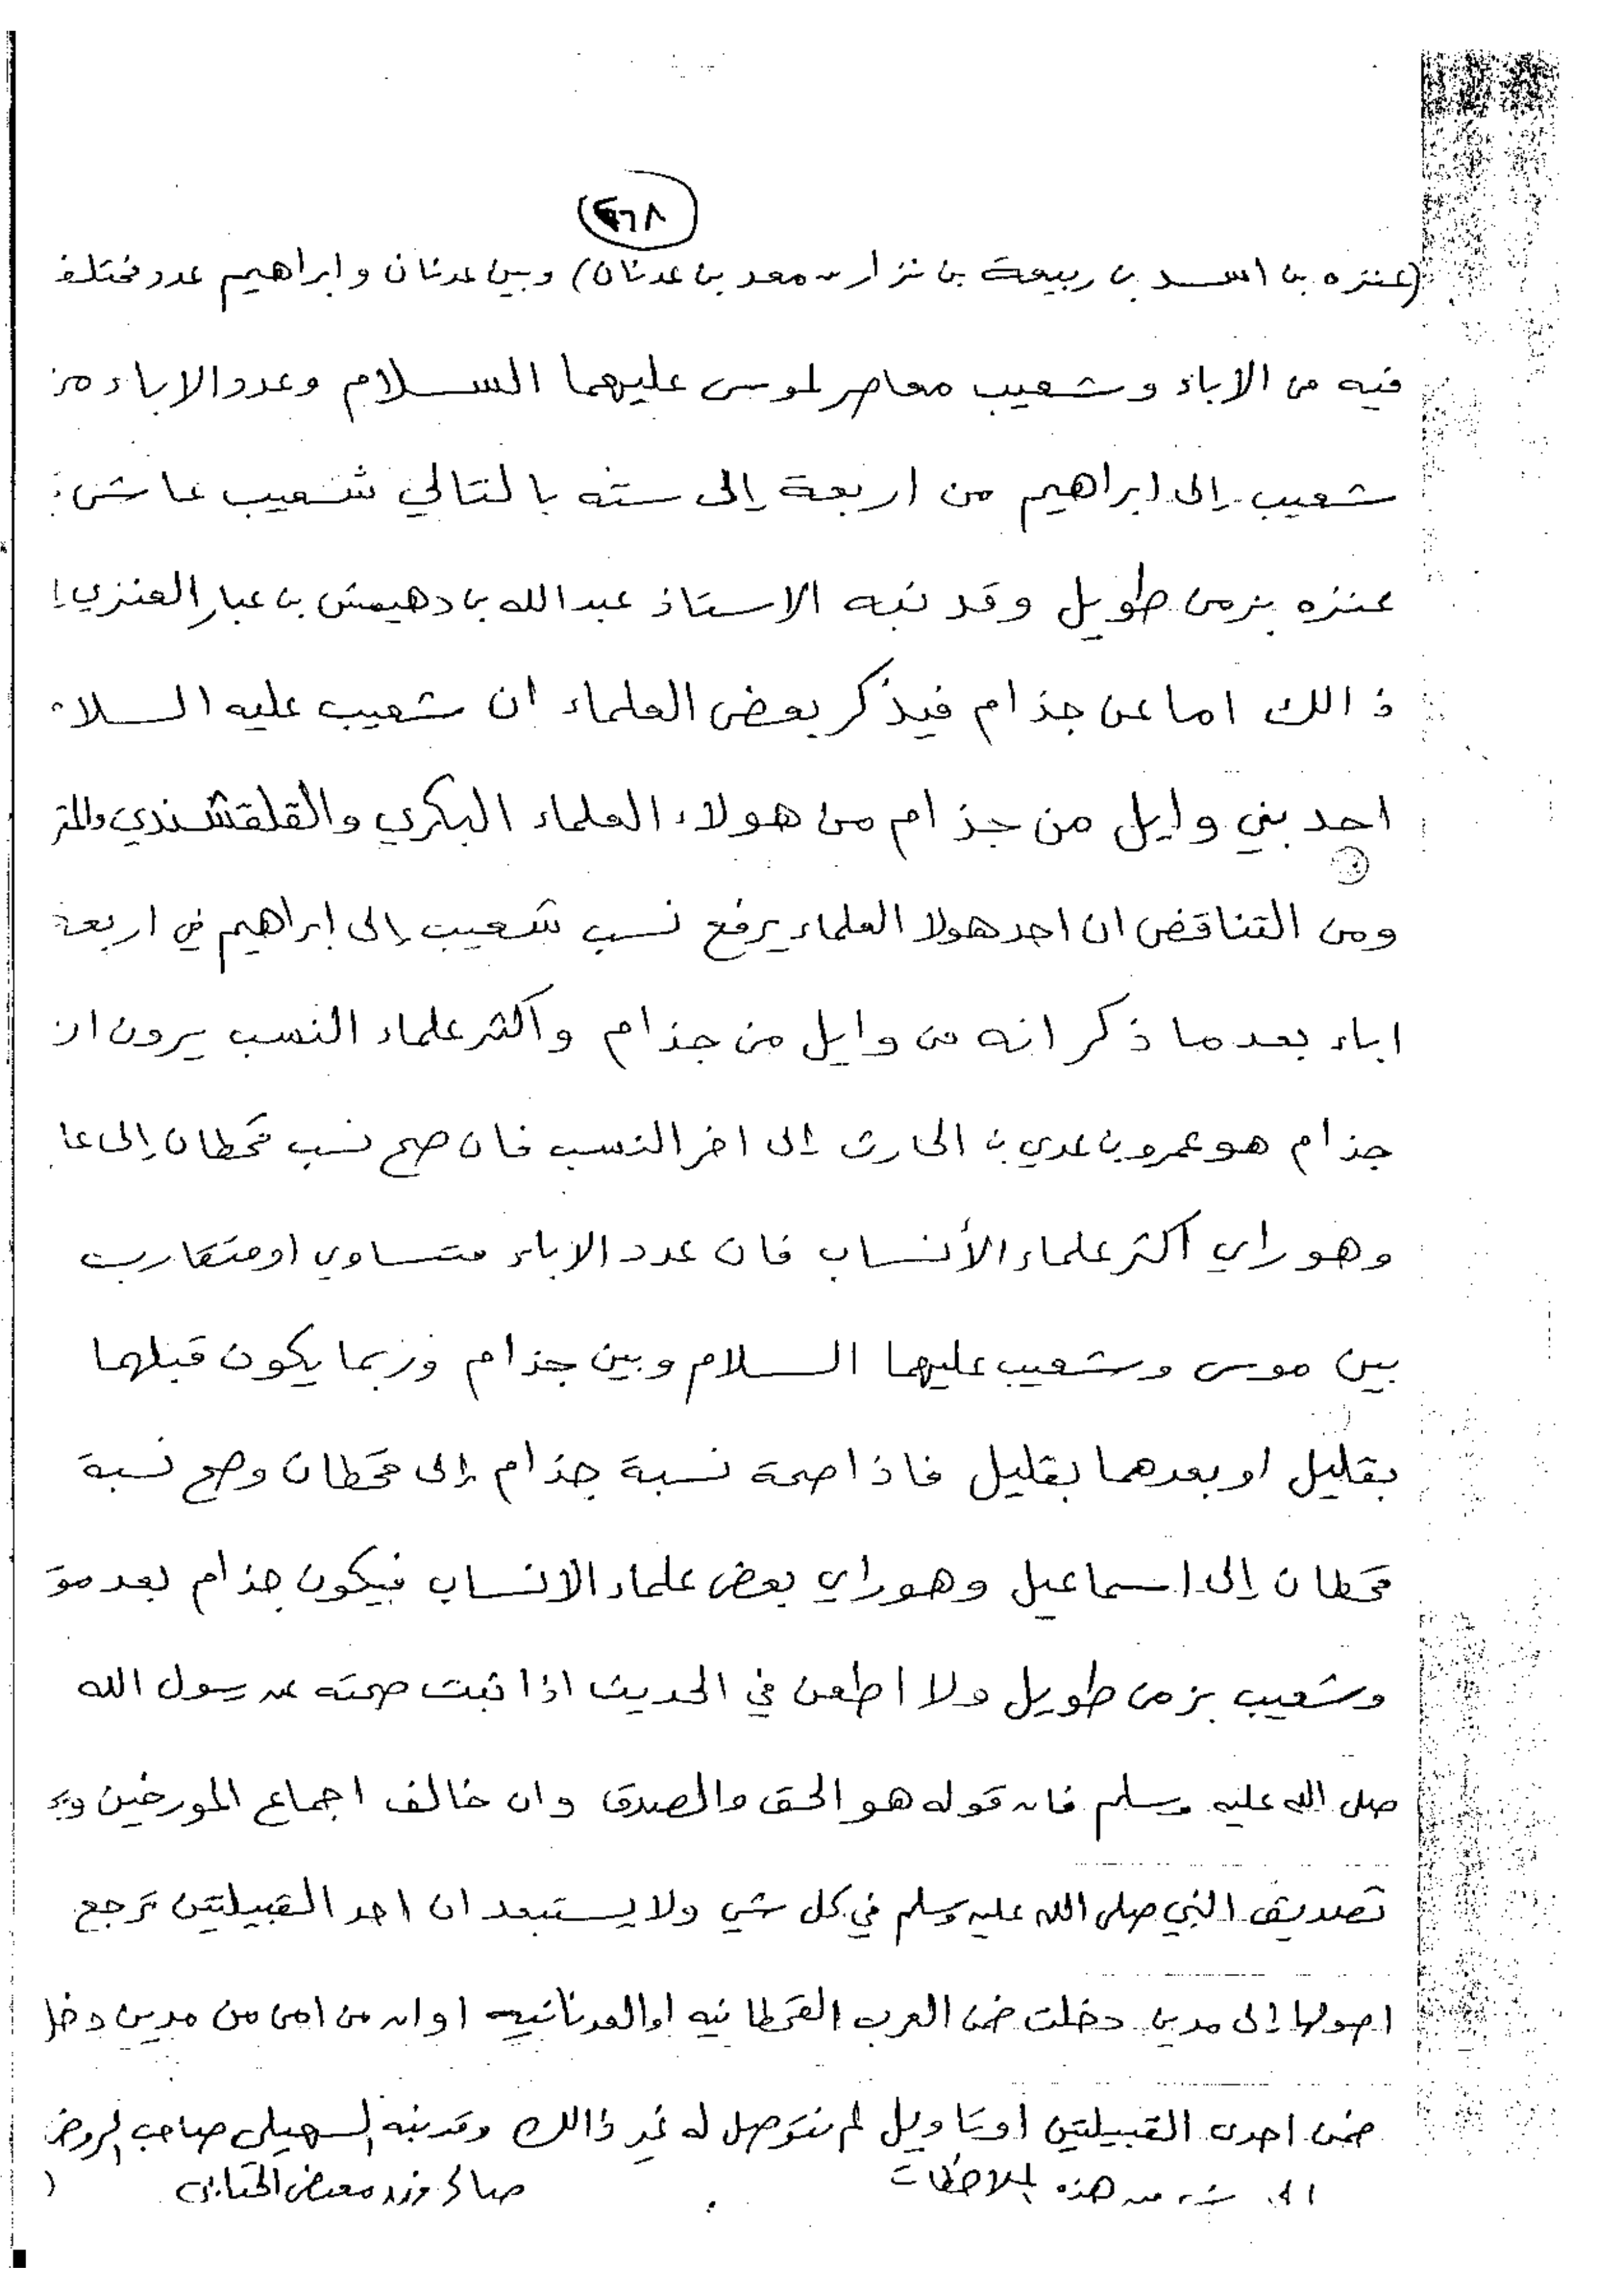 (عنزه بن اسد بن ربيعة بن نزار بن معد بن عدنان) وبين عدنان وابراهيم عدد مختلف
فيه من الاباء وشعيب معاصر لموسى عليهما السلام وعدد الاباء من
شعيب إلى ابراهيم من اربعة إلى سته بالتالي شعيب عاش
عنزه بزمن طويل وقد نبه الاستاذ عبدالله بن دهيمش بن عبار العنزي
ذالك اما عن جذام فيذكر بعض العلماء ان شعيب عليه السلا
احد بني وايل من جذام من هولاء العلماء البكري والقلقشندي
ومن التناقض ان احد هولا العلماء يرفع نسب شعيب إلى إبراهيم في اربعة
اباء بعدما ذكر انه من وايل من جذام واكثر علماء النسب يرون ان
جذام هو عمرو بن عدي بن الحارث إلى اخر النسب فان صح نسب قحطان إلى عا
وهو راي اكثر علماء الأنساب فان عدد الاباء متساوي او متقارب
بين موسى وشعيب عليهما السلام وبين جذام وربما يكون قبلهما
بقليل او بعدهما بقليل فاذا صحة نسبة جذام إلى قحطان وصح نسبة
قحطان إلى اسماعيل وهو راي بعض علماء الانساب فيكون جذام بعد مو
وشعيب بزمن طويل ولا اطعن في الحديث اذا ثبت صحته عن رسول الله
صلى الله عليه وسلم فان قوله هو الحق والصدق وان خالف اجماع المورخين
تصديق النبي صلى الله عليه وسلم في كل شي ولا يستبعد ان احد القبيلتين ترجع
اصولها إلى مدين دخلت ضمن العرب القحطانيه او العدنانيه او ان من امن من مدين دخل
ضمن احدى القبيلتين او تاويل لم نتوصل له غير ذالك وقد نبه السهيلي صاحب الروض
الى شي من هذه الملاحظات